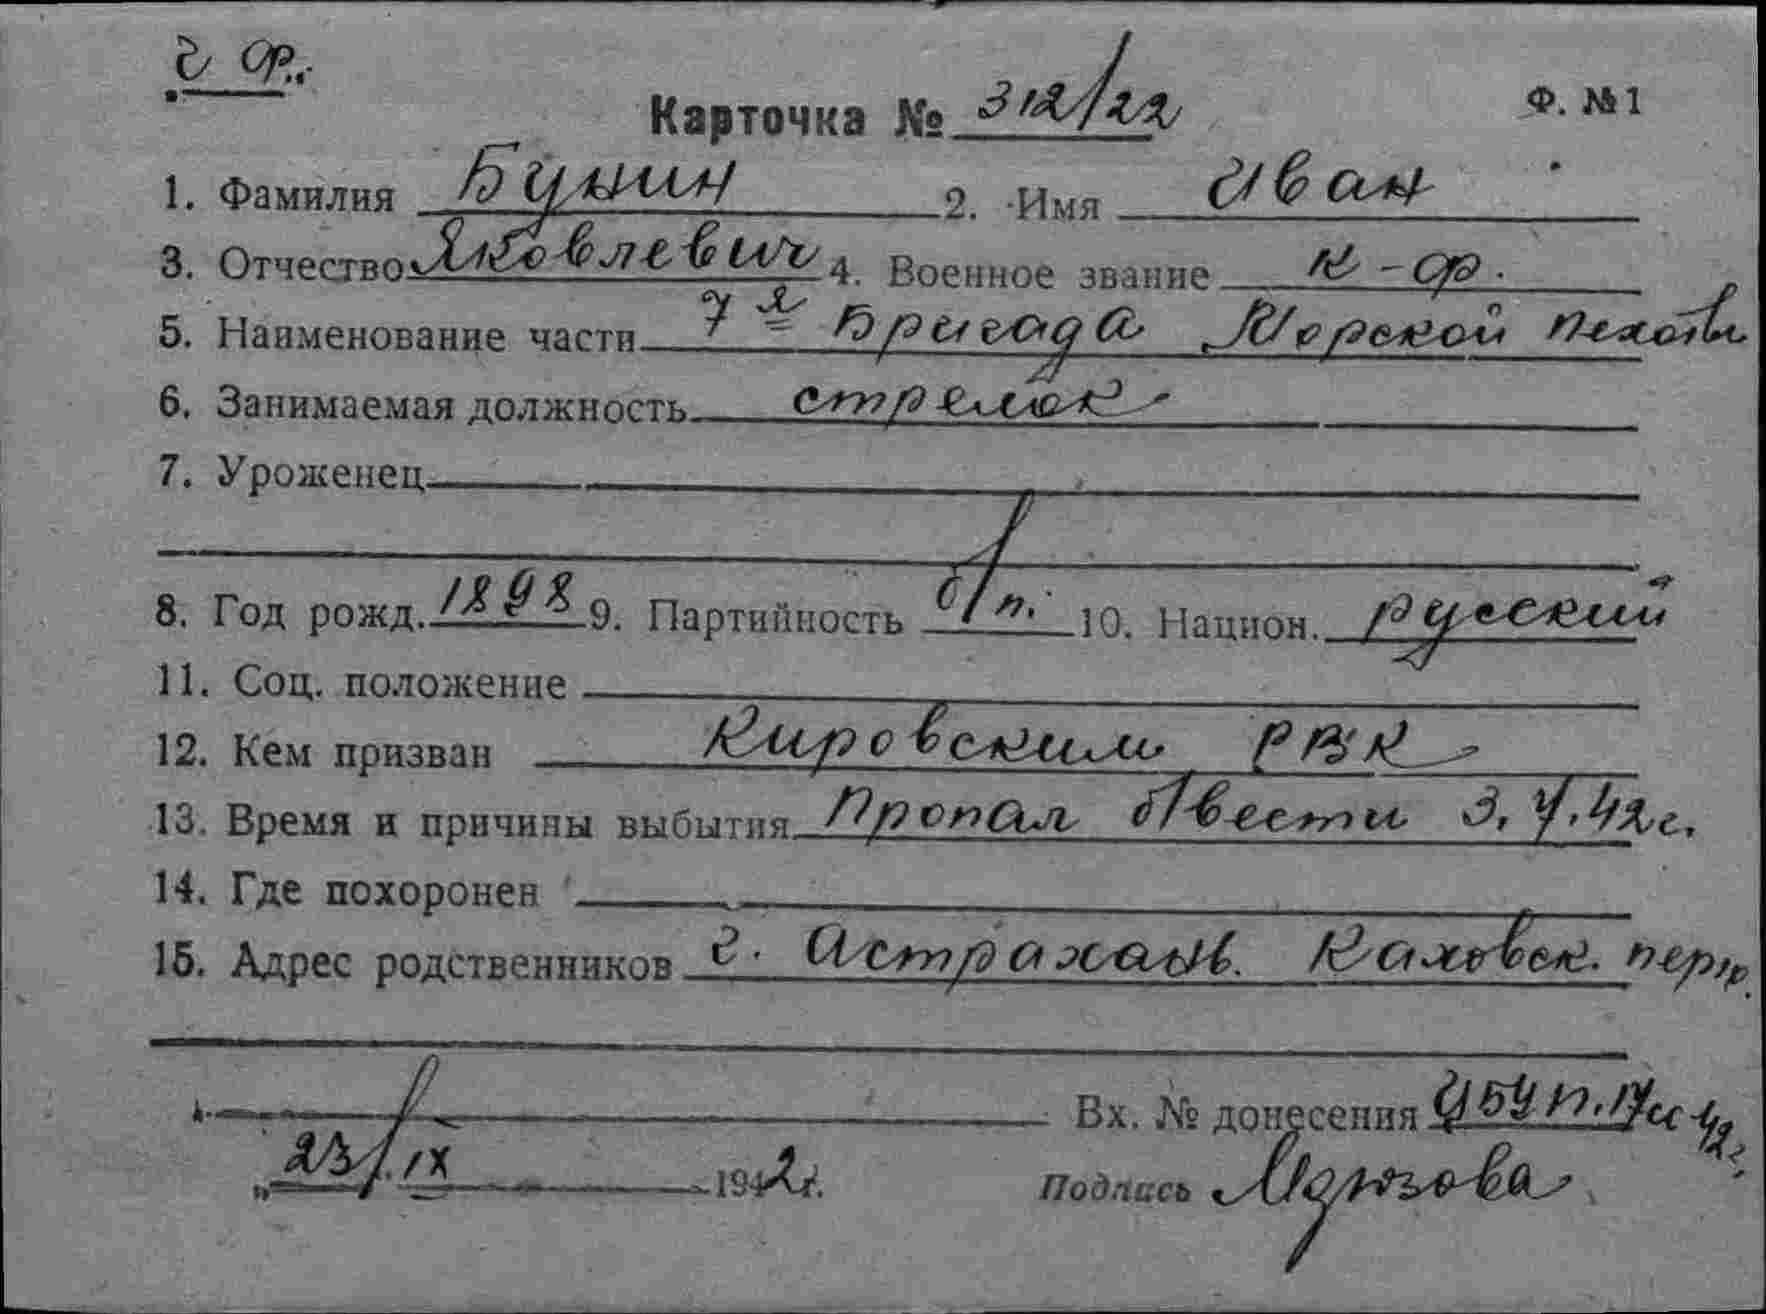 Карточка № 312/22 Ф. №1
1. Фамилия Бунин 2. Имя Иван
3. Отчество Яковлевич 4. Военное звание к-ор.
5. Наименование части 7я Бригада Морской пехоты
6. Занимаемая должность стрелок
7. Уроженец
8. Год рожд. 1898 9. Партийность б/п. 10. Национ. русский
11. Соц. положение
12. Кем призван Кировским РВК
13. Время и причины выбытия Пропал б/вести 3.
14. Где похоронен
15. Адрес родственников г. Астрахань. Каховск. пер
Вх. № донесения
„23/IX 1942г. Подпись